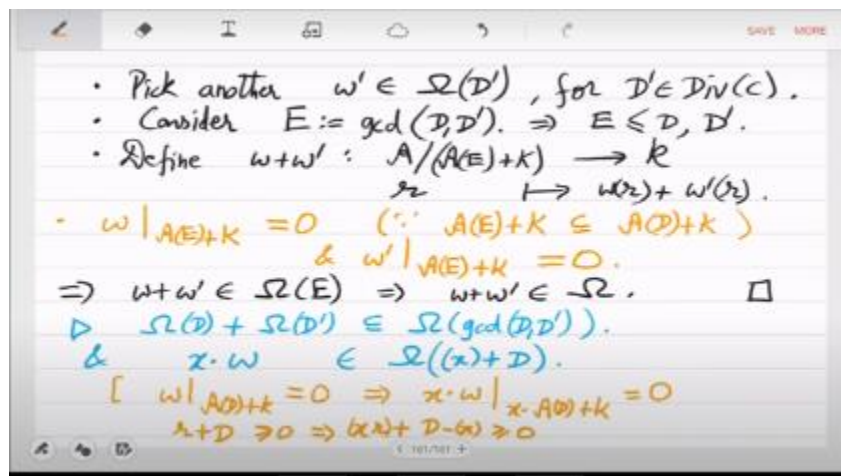 SAVE MORE
· Pick another ω' ∈ Ω(D'), for D' ∈ Div(C).
· Consider E := gcd(D,D'). ⇒ E ≤ D, D'.
· Define ω+ω' : A/(A(E)+K) → k
r ↦ ω(r) + ω'(r).
· ω|A(E)+K = 0 (∵ A(E)+K ⊆ A(D)+K)
& ω'|A(E)+K = 0.
⇒ ω+ω' ∈ Ω(E) ⇒ ω+ω' ∈ Ω. □
▷ Ω(D) + Ω(D') ⊆ Ω(gcd(D,D')).
& x·ω ∈ Ω((x)+D).
[ ω|A(D)+K = 0 ⇒ x·ω|x·A(D)+K = 0
r+D ≥ 0 ⇒ (xr)+ D-(x) ≥ 0
< 161/161 +